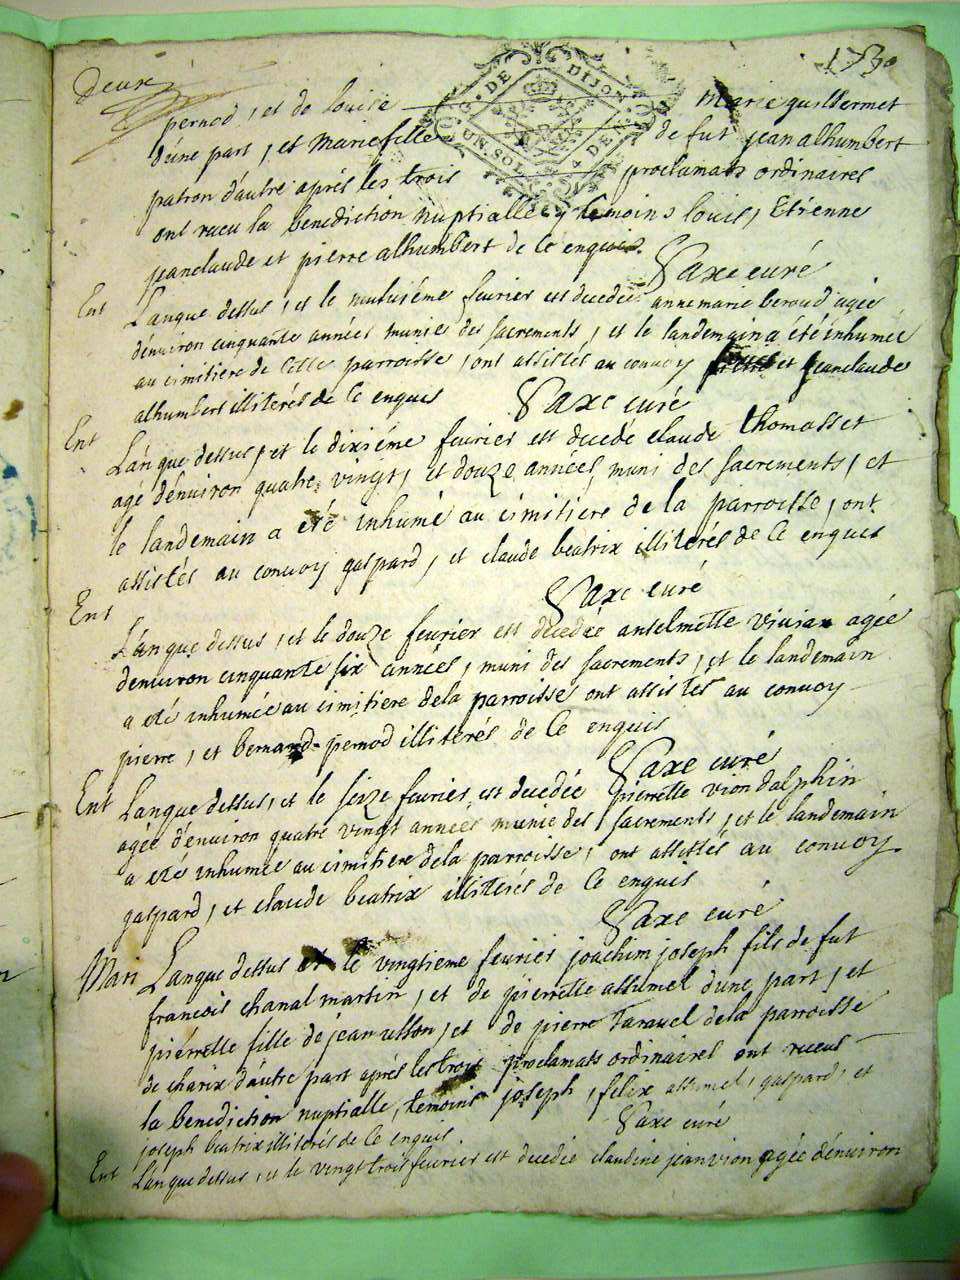 Deux 1730
G. DE DIJON UN SOL 4 DEN.
pernod, et de louise marie guillermet
d'une part, et marie fille de fut jean alhumbert
patron d'autre aprés les trois proclamats ordinaires
ont receu la benediction nuptialle temoins louis, Etienne
jeanclaude et pierre alhumbert de ce enquis.
Saxe curé
Ent L'anque dessus, et le fevrier est decedée annemarie beroud agée
d'environ cinquante années munie des sacrements, et le landemain a été inhumée
au cimitiere de cette parroisse, ont assistés au convoy et jeanclaude
alhumbert illiterés de ce enquis
Saxe curé
Ent L'anque dessus, et le dixiéme fevrier est decedé claude thomasset
agé d'environ quatre vingt, et douze années, muni des sacrements, et
le landemain a eté inhumé au cimitiere de la parroisse, ont
assistés au convoy gaspard, et claude beatrix illiterés de ce enquis
Saxe curé
Ent
L'anque dessus, et le douze fevrier est decedée anselmette agée
denviron cinquante six années, muni des sacrements, et le landemain
a eté inhumée au cimitiere dela parroisse ont assistés au convoy
pierre, et bernard pernod illiterés de ce enquis
Saxe curé
Ent L'anque dessus, et le seize fevrier est decedée pierrette vion dalphin
agée d'environ quatre vingt années munie des sacrements, et le landemain
a eté inhumée au cimitiere dela parroisse, ont assistés au convoy
gaspard, et claude beatrix illiterés de ce enquis
Saxe curé
Mari L'anque dessus et le vingtieme fevrier joachim joseph fils de fut
francois chanal martin, et de pierrette assumel dune part, et
pierrette fille de jean usson, et de pierre taravel dela parroisse
de charix d'autre part aprés les trois proclamats ordinaires ont receus
la benediction nuptialle, temoins joseph, felix assumel, gaspard, et
joseph beatrix illiterés de ce enquis. Saxe curé
Ent L'anque dessus, et le vingt trois fevrier est decedée claudine jeanvion agée d'environ